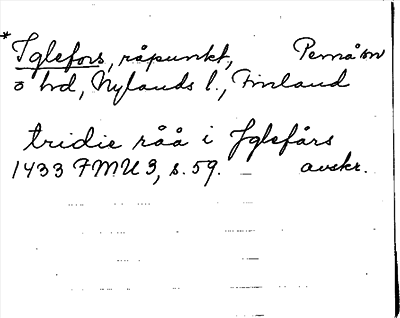 *
Iglefors, råpunkt, Pernå sn
ö hd, Nylands l., Finland
tridie råå i Jglefårs
1433 FMU 3, s. 59. avskr.